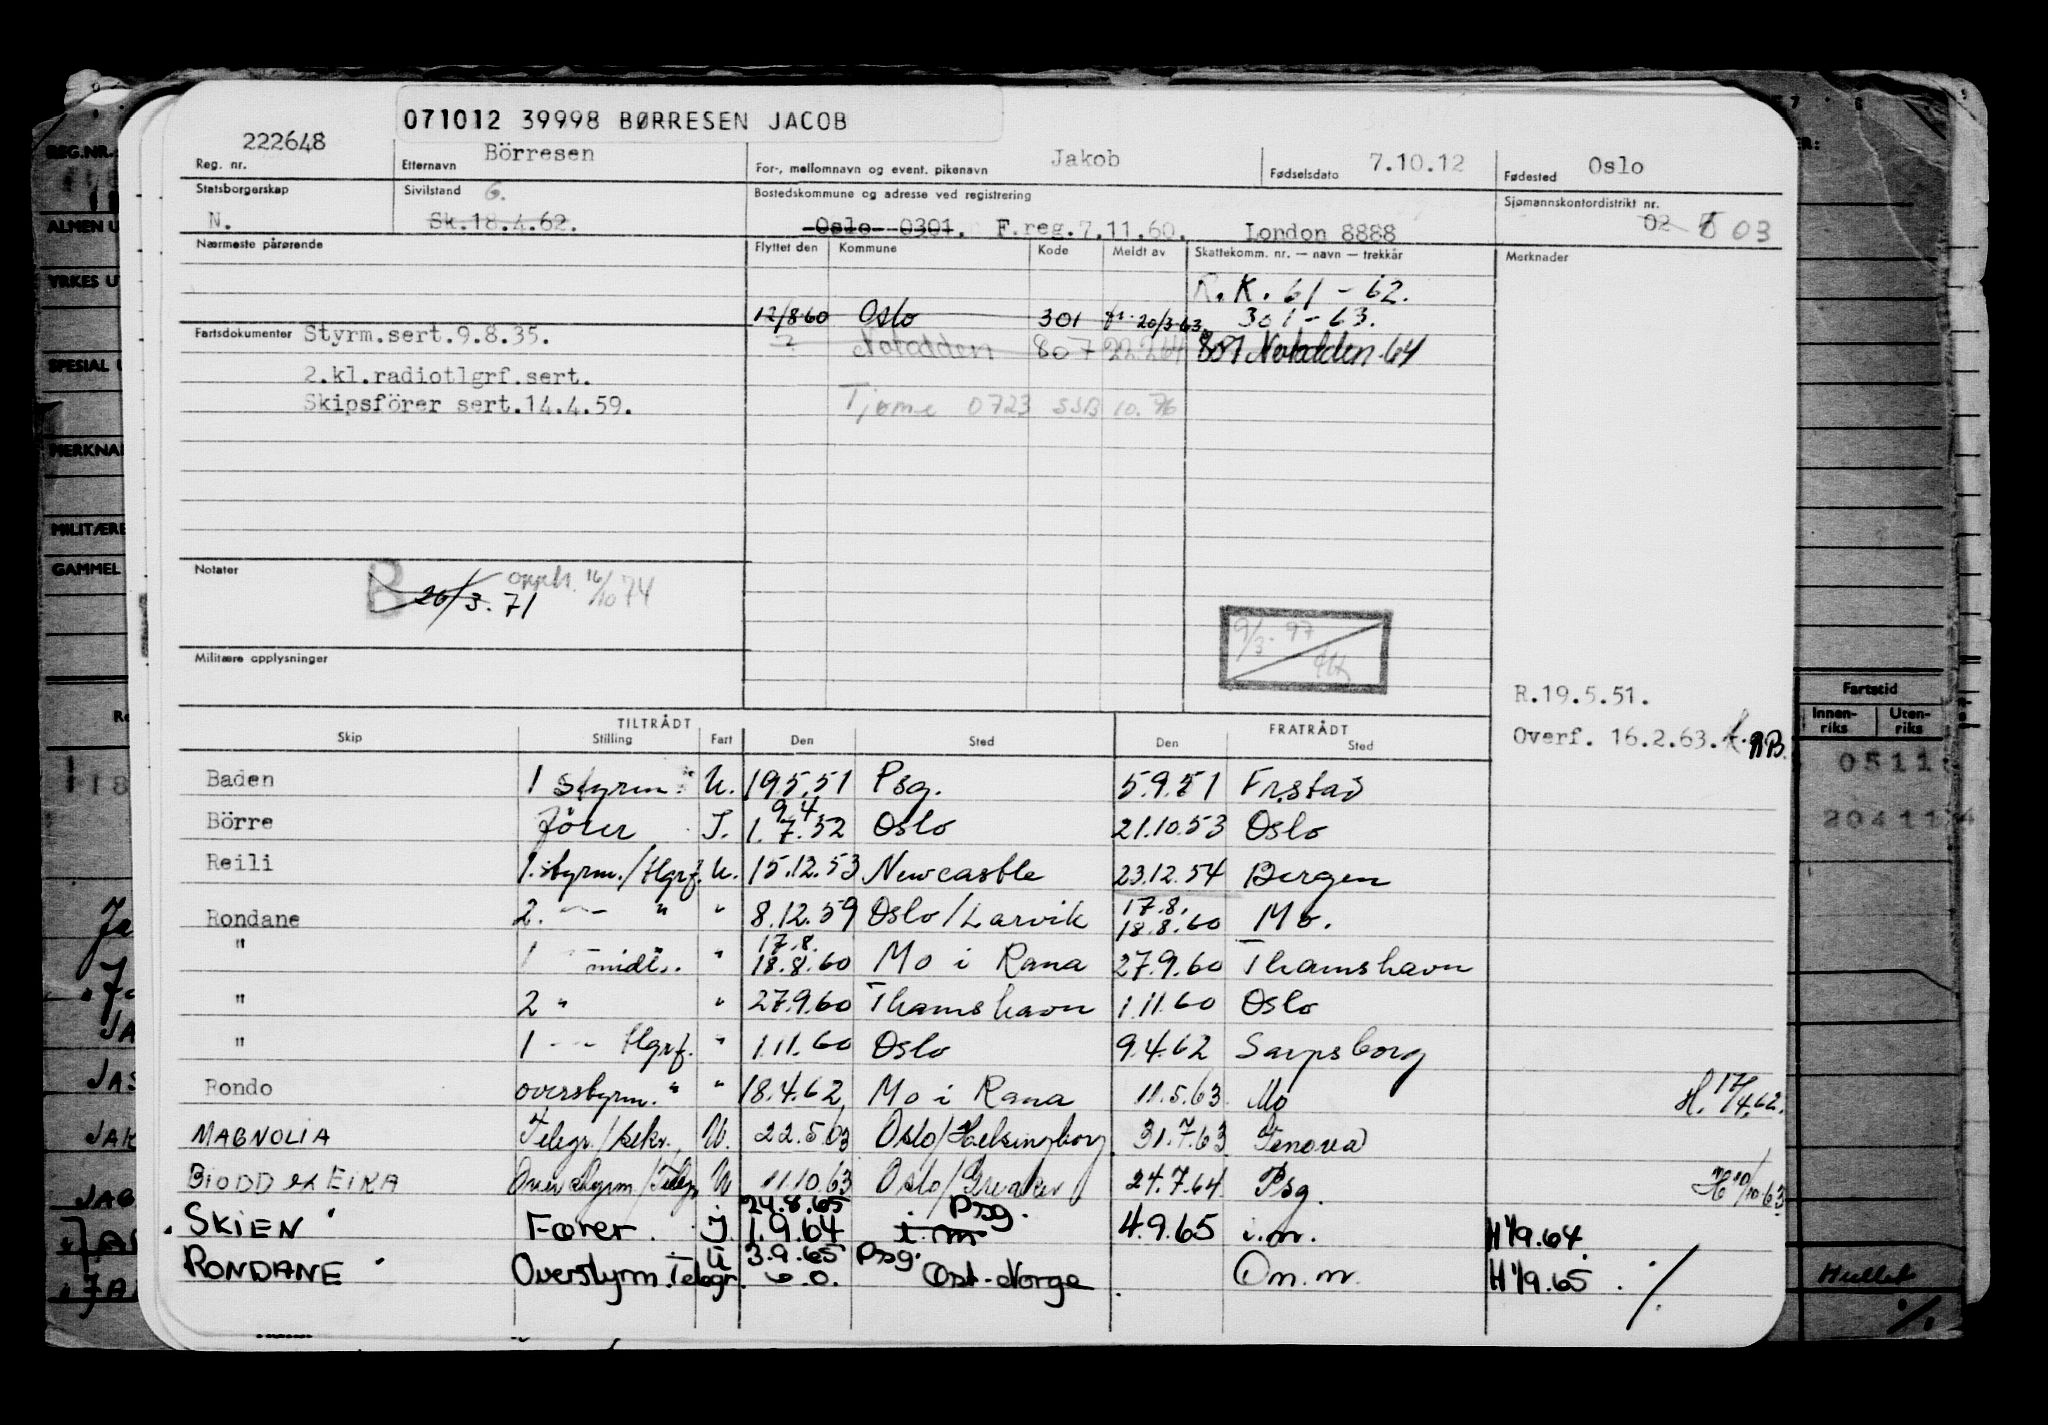 071012 39998 BØRRESEN JACOB
222648 Börresen Jakob 7.10.12 Oslo
Reg. nr. Etternavn For-, mellomnavn og event. pikenavn Fødselsdato Fødested
Statsborgerskap Sivilstand G. Bostedskommune og adresse ved registrering Sjømannskontordistrikt nr.
N. Sk.18.4.62. Oslo 0301. F.reg.7.11.60. London 8888 02 03
Nærmeste pårørende Flyttet den Kommune Kode Meldt av Skattekomm. nr. — navn — trekkår Merknader
R.K. 61-62.
12/8 60 Oslo 301 20/3-63 301-63.
Fartsdokumenter Styrm.sert.9.8.35. ? Notodden 807 22.2.64 807 Notodden-64
2.kl.radiotlgrf.sert.
Skipsförer sert.14.4.59. Tjøme 0723 SSB 10.76
Notater B 26/3.71 16/10 74
9/3-97
Militære opplysninger
R.19.5.51.
Overf. 16.2.63. AB.
TILTRÅDT FRATRÅDT
Skip Stilling Fart Den Sted Den Sted
Baden 1 styrm. U. 19.5.51 Psg. 5.9.51 Fr.stad
Börre förer I. 9.4. 1.7.52 Oslo 21.10.53 Oslo
Reili 1.styrm./tlgrf. U. 15.12.53 Newcastle 23.12.54 Bergen
Rondane 2. -"- " " 8.12.59 Oslo/Larvik 17.8. 18.8.60 Mo.
" 1 midl. " 17.8. 18.8.60 Mo i Rana 27.9.60 Thamshavn
" 2 " " 27.9.60 Thamshavn 1.11.60 Oslo
" 1 -"- tlgrf. " 1.11.60 Oslo 9.4.62 Sarpsborg
Rondo overstyrm. " " 18.4.62 Mo i Rana 11.5.63 Mo H. 17/4.62.
MAGNOLIA Telegr./sekr. U. 22.5.63 Oslo/Helsingborg 31.7.63 Genova
BIODD ex EIKA Overstyrm/Telegr U 11.10.63 Oslo/Greaker 24.7.64 Psg. H 10/10-63
SKIEN Fører. I. 24.8.65 1.9.64 Psg. i.m 4.9.65 i.m. H 1/9.64.
RONDANE Overstyrm.Telegr. U 3.9.65 Psg. Ost-Norge Om.m. H 1/9.65 ./.
REG.NR.
ALMEN U
YRKES U
SPESIAL U
MERKNA
MILITÆRE
GAMMEL
Fartstid
Innen-riks Uten-riks
0511
20411
Hullet
./.